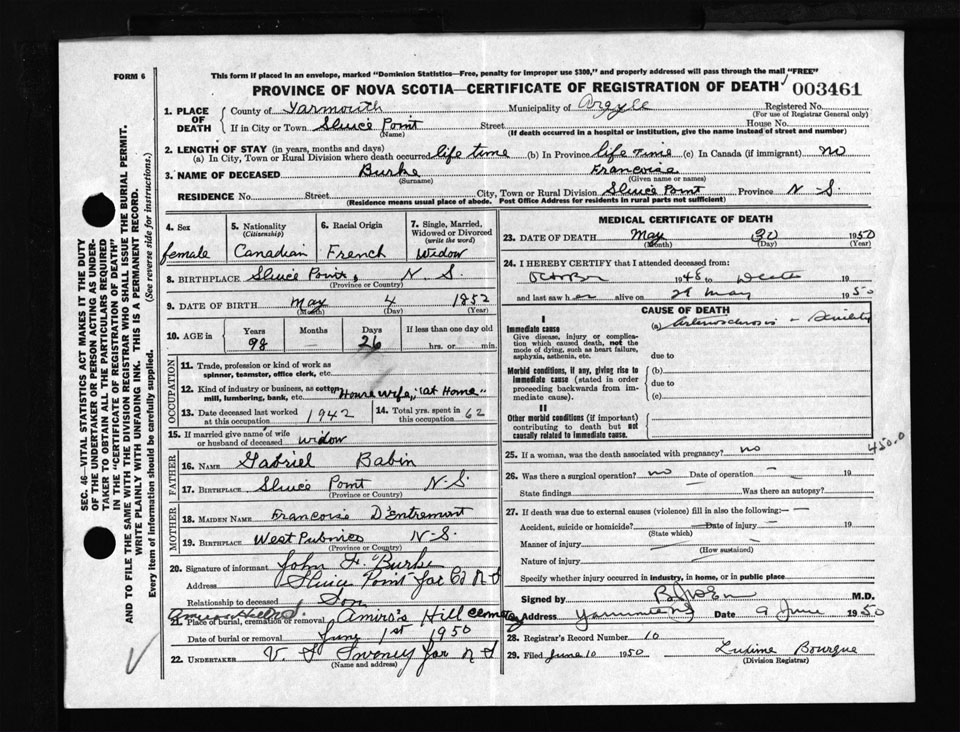 FORM 6
This form if placed in an envelope, marked "Dominion Statistics—Free, penalty for improper use $300," and properly addressed will pass through the mail "FREE"
PROVINCE OF NOVA SCOTIA—CERTIFICATE OF REGISTRATION OF DEATH 003461
SEC. 46—VITAL STATISTICS ACT MAKES IT THE DUTY
OF THE UNDERTAKER OR PERSON ACTING AS UNDER-
TAKER TO OBTAIN ALL THE PARTICULARS REQUIRED
IN THE "CERTIFICATE OF REGISTRATION OF DEATH"
AND TO FILE THE SAME WITH THE DIVISION REGISTRAR WHO SHALL ISSUE THE BURIAL PERMIT.
WRITE PLAINLY WITH UNFADING INK. THIS IS A PERMANENT RECORD.
Every item of information should be carefully supplied. (See reverse side for instructions.)
1. PLACE OF DEATH County of Yarmouth Municipality of Argyle Registered No.
(For use of Registrar General only)
If in City or Town Sluice Point Street House No.
(Name) (If death occurred in a hospital or institution, give the name instead of street and number)
2. LENGTH OF STAY (in years, months and days)
(a) In City, Town or Rural Division where death occurred life time (b) In Province life time (c) In Canada (if immigrant) no
3. NAME OF DECEASED Burke Francoise
(Surname) (Given name or names)
RESIDENCE No. Street City, Town or Rural Division Sluice Point Province N S.
(Residence means usual place of abode. Post Office Address for residents in rural parts not sufficient)
4. Sex female
5. Nationality (Citizenship) Canadian
6. Racial Origin French
7. Single, Married, Widowed or Divorced (write the word) Widow
8. BIRTHPLACE Sluice Point, N S.
(Province or Country)
9. DATE OF BIRTH May 4 1852
(Month) (Day) (Year)
10. AGE in Years 98 Months Days 26 If less than one day old hrs. or min.
OCCUPATION
11. Trade, profession or kind of work as
spinner, teamster, office clerk, etc.
12. Kind of industry or business, as cotton
mill, lumbering, bank, etc. House wife, "at Home"
13. Date deceased last worked
at this occupation 1942
14. Total yrs. spent in
this occupation 62
15. If married give name of wife
or husband of deceased widow
FATHER
16. NAME Gabriel Babin
17. BIRTHPLACE Sluice Point N.S.
(Province or Country)
MOTHER
18. MAIDEN NAME Francoise D'Entremont
19. BIRTHPLACE West Pubnico N-S.
(Province or Country)
20. Signature of informant John H. Burke
Address Sluice Point Yar Co N S
Relationship to deceased Son
21. Place of burial, cremation or removal Amiro's Hill cemetery
Date of burial or removal June 1st 1950
22. UNDERTAKER V. S Sweeny Yar N S
(Name and address)
MEDICAL CERTIFICATE OF DEATH
23. DATE OF DEATH May 30 1950
(Month) (Day) (Year)
24. I HEREBY CERTIFY that I attended deceased from:
October 1948 to Death 19
and last saw her alive on 29 May 1950
CAUSE OF DEATH
I
Immediate cause (a) Arteriosclerosis - Senility
Give disease, injury or complica-
tion which caused death, not the
mode of dying, such as heart failure,
asphyxia, asthenia, etc. due to
Morbid conditions, if any, giving rise to (b)
immediate cause (stated in order
proceeding backwards from im-
mediate cause). due to
(c)
II
Other morbid conditions (if important)
contributing to death but not
causally related to immediate cause.
450.0
25. If a woman, was the death associated with pregnancy? no
26. Was there a surgical operation? no Date of operation — 19
State findings Was there an autopsy?
27. If death was due to external causes (violence) fill in also the following:—
Accident, suicide or homicide? Date of injury — 19
(State which)
Manner of injury
(How sustained)
Nature of injury
Specify whether injury occurred in industry, in home, or in public place
Signed by M.D.
Address Yarmouth NS Date 9 June 1950
28. Registrar's Record Number 10
29. Filed June 10 1950 Bourque
(Division Registrar)